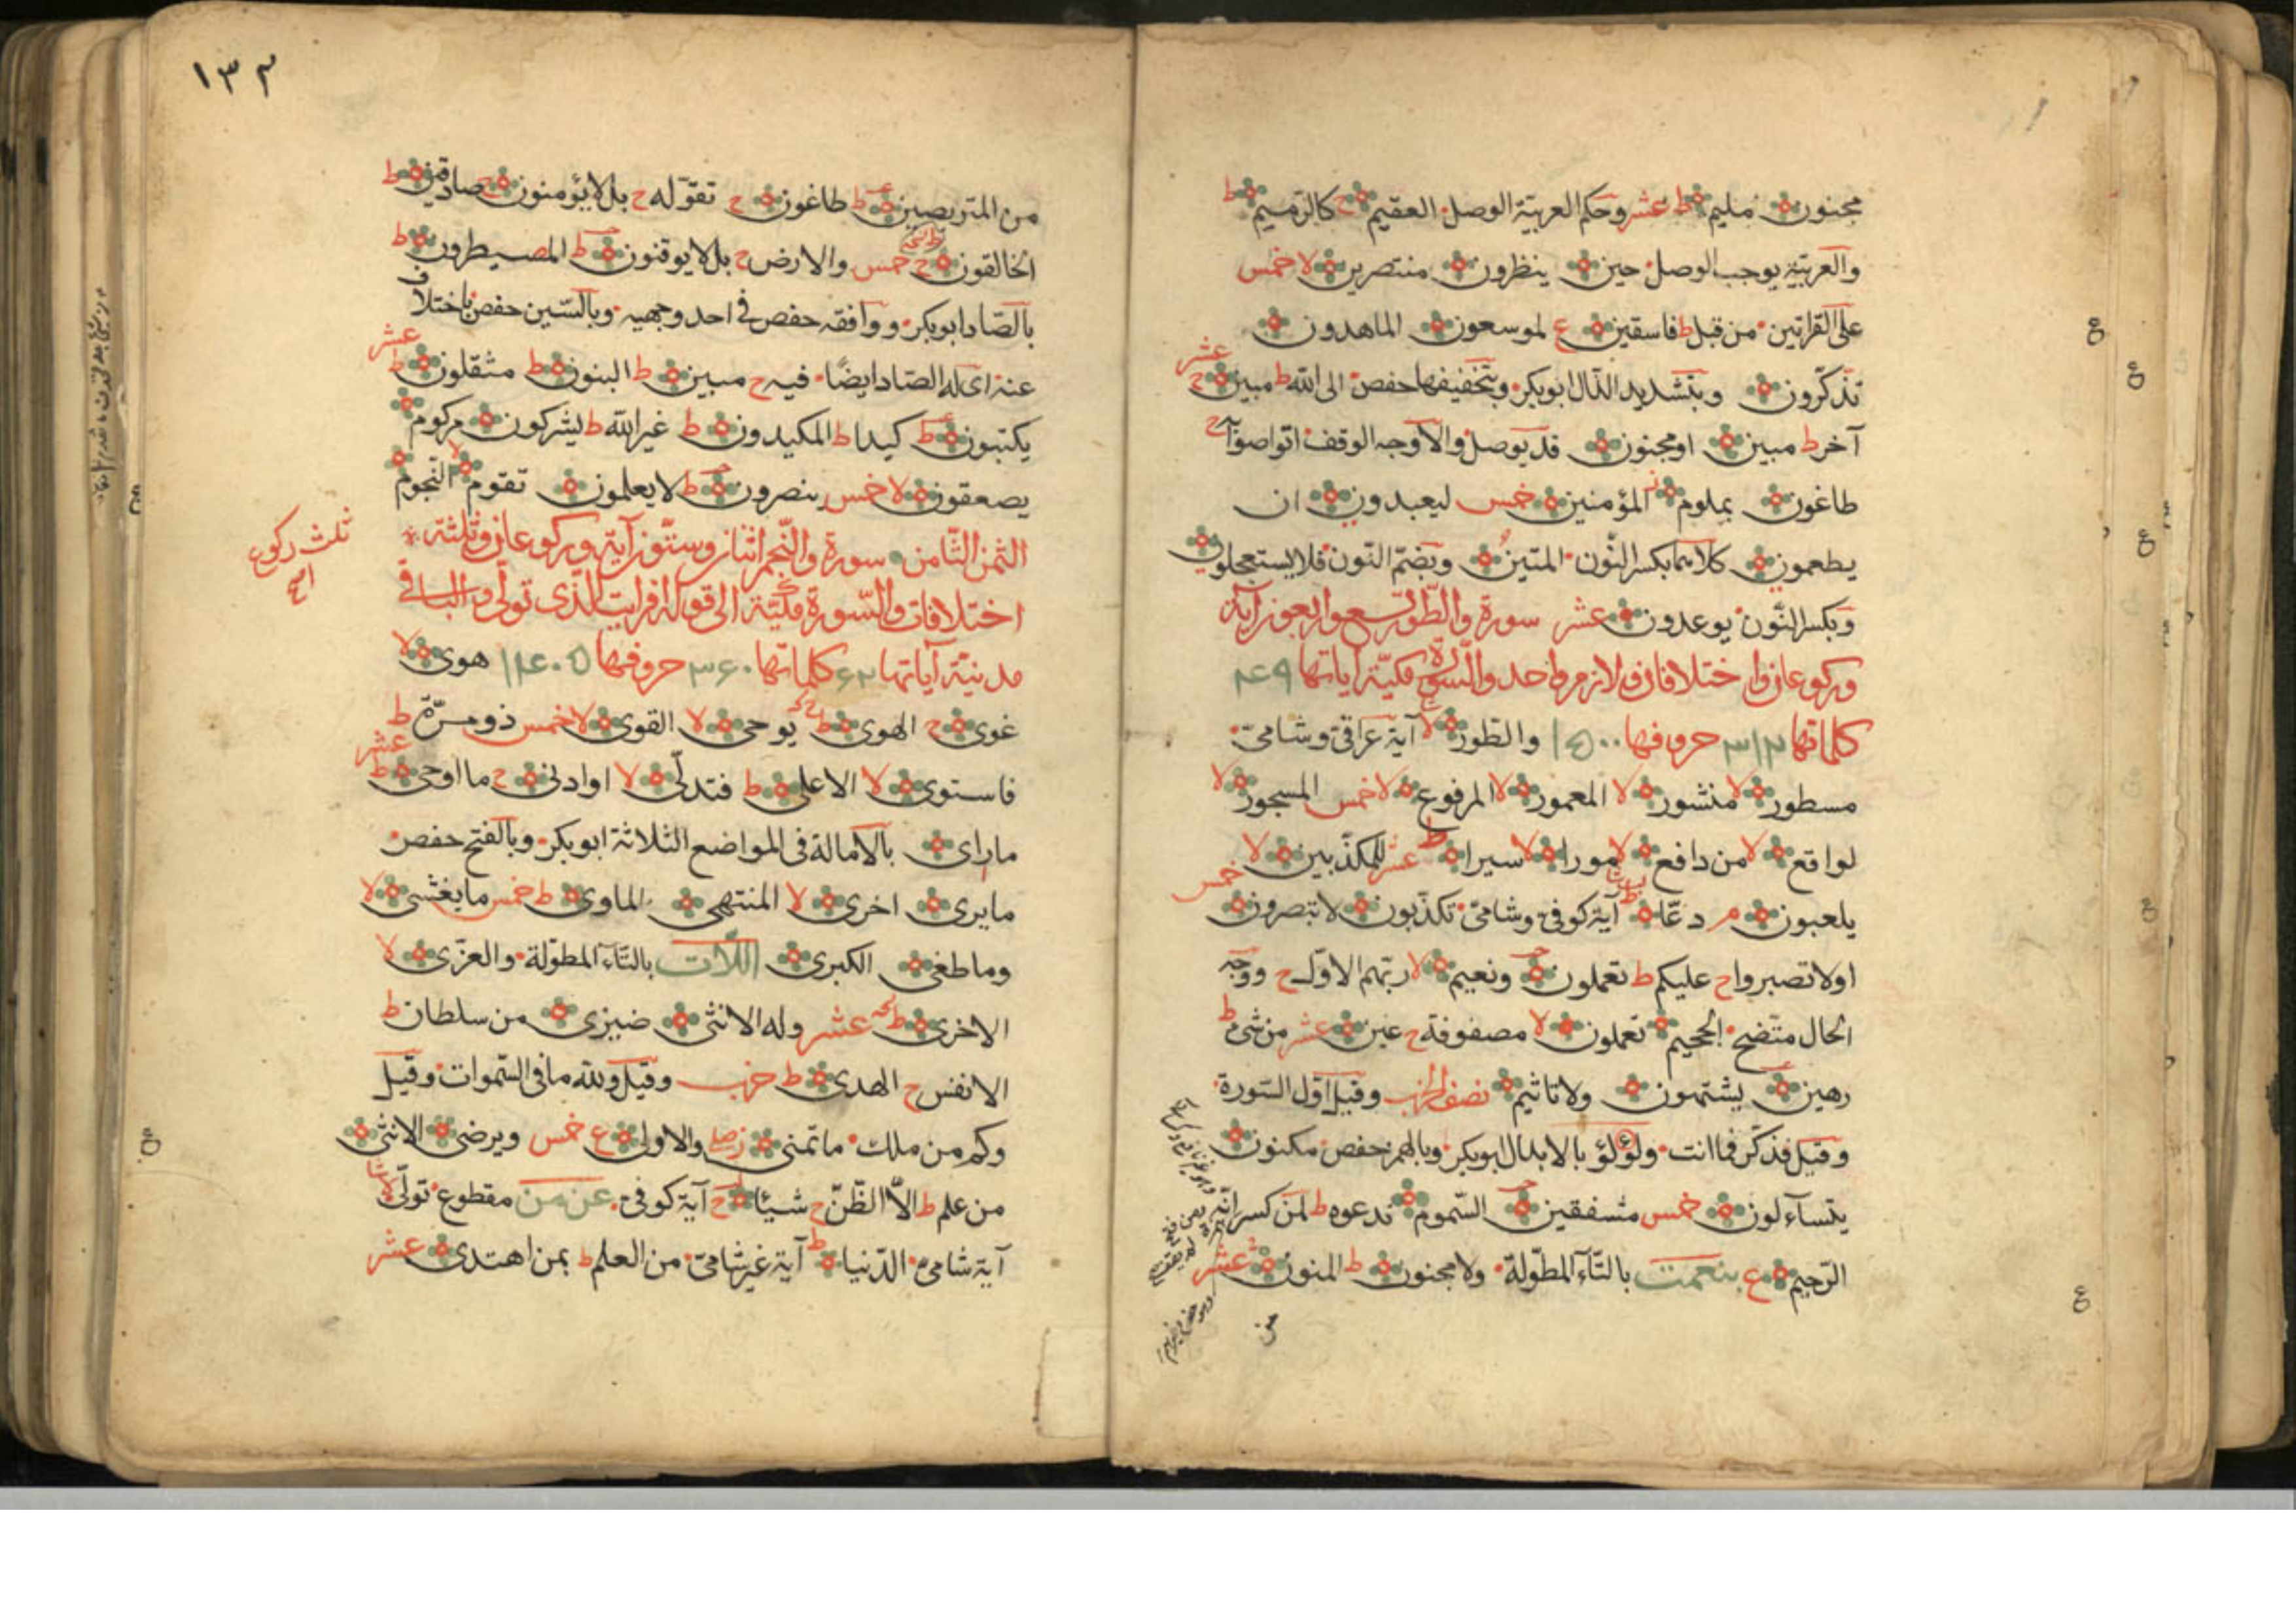 مجنون مليم ط عشر وحكم العربية الوصل العقيم ح كالرميم ط
والعربية يوجب الوصل حين ينظرون منتصرين لا خمس
على القراتين من قبل ط فاسقين ع لموسعون الماهدون
تذكّرون وبتشديد الذال ابو بكر وبتخفيفها حفص الى الله ط مبين ح عشر
آخر ط مبين او مجنون قد يوصل والاوجه الوقف اتواصوا ح
طاغون بملوم المؤمنين خمس ليعبدون ان
يطعمون كلاهما بكسر النّون المتين وبضمّ النّون فلا يستعجلون
وبكسر النّون يوعدون عشر سورة والطّور تسع واربعون آية
وركوعان واختلافان ولازم واحد والسّورة مكيّة اياتها ٤٩
كلماتها ٣١٢ حروفها ١٥٠٠ والطور لا آية عراقى وشامىّ
مسطور لا منشور لا المعمور لا المرفوع لا خمس المسجور لا
لواقع لا من دافع لا مورا لا سيرا ط عشر للمكذّبين لا
خمس
يلعبون م دعّا ط آية كوفى وشامىّ تكذّبون لا تبصرون
اولا تصبروا ح عليكم ط تعملون ونعيم لا ربّهم الاوّل ح ووجه
الحال متّضح الجحيم تعملون لا مصفوفة ح عين عشر من شئ ط
رهين يشتهون ولا تاثيم نصف الحزب وقيل اوّل السّورة
وقيل فذكّر فما انت ولؤلؤ بالابدال ابو بكر وبالهمز حفص مكنون
يتسآءلون خمس مشفقين السّموم ندعوه ط لمن كسر انّه
الرّحيم ع بنعمت بالتّاء المطوّلة ولا مجنون ط المنون عشر
من
١٣٢
من المتربصين ط طاغون ح تقوّله ح بل لا يؤمنون ح صادقين ط
الخالقون ح خمس والارض ح بل لا يوقنون ط المصيطرون ط
بالصّاد ابو بكر ووافقه حفص فى احد وجهيه وبالسّين حفص باختلاف
عنه اى له الصّاد ايضًا فيه ح مبين ط البنون ط مثقلون ط عشر
يكتبون ط كيدا ط المكيدون ط غير الله ط يشركون مركوم
يصعقون لا خمس ينصرون ط لا يعلمون تقوم لا النّجوم
الثمن الثّامن سورة والنّجم اثنان وستّون آية وركوعان وثلثة
ثلث ركوع
اختلافات والسّورة مكّيّة الى قوله افرايت الّذى تولّى والباقى
مدنيّة آياتها ٦٢ كلماتها ٣٦٠ حروفها ١٤٠٥ هوى لا
غوى ح الهوى ط يوحى لا القوى لا خمس ذو مرّة ط
فاستوى لا الاعلى ط فتدلّى لا او ادنى ح ما اوحى ط عشر
ما راى بالامالة فى المواضع الثلاثة ابو بكر وبالفتح حفص
ما يرى اخرى لا المنتهى الماوى ط خمس ما يغشى لا
وما طغى الكبرى اللّات بالتّاء المطوّلة والعزّى لا
الاخرى ط عشر وله الانثى ضيزى من سلطان ط
الانفس ح الهدى ط حزب وقيل ولله ما فى السّموات وقيل
وكم من ملك ما تمنى والاولى ع خمس ويرضى الانثى
من علم ط الّا الظّنّ ح شيئا ح آية كوفى عن من مقطوع تولّى لا
آية شامى الدّنيا ط آية غير شامىّ من العلم ط بمن اهتدى عشر